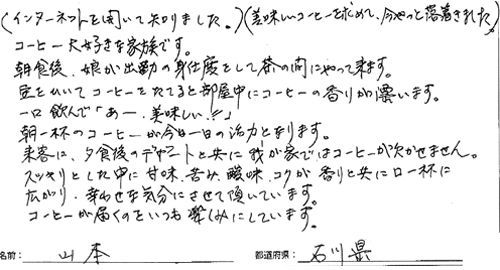 (インターネットを開いて知りました。)(美味しいコーヒーを求めて、今やっと落着きました)
コーヒー大好きな家族です。
朝食後、娘が出勤の身仕度をして茶の間にやって来ます。
豆をひいてコーヒーをたてると部屋中にコーヒーの香りが漂います。
一口飲んで「あー、美味しい!!」
朝一杯のコーヒーが今日一日の活力となります。
来客に、夕食後のデザートと共に我が家ではコーヒーが欠かせません。
スッキリとした中に甘味、苦み、酸味、コクが香りと共に口一杯に
広がり、幸わせな気分にさせて頂いています。
コーヒーが届くのをいつも楽しみにしています。
名前: 山本 都道府県: 石川県